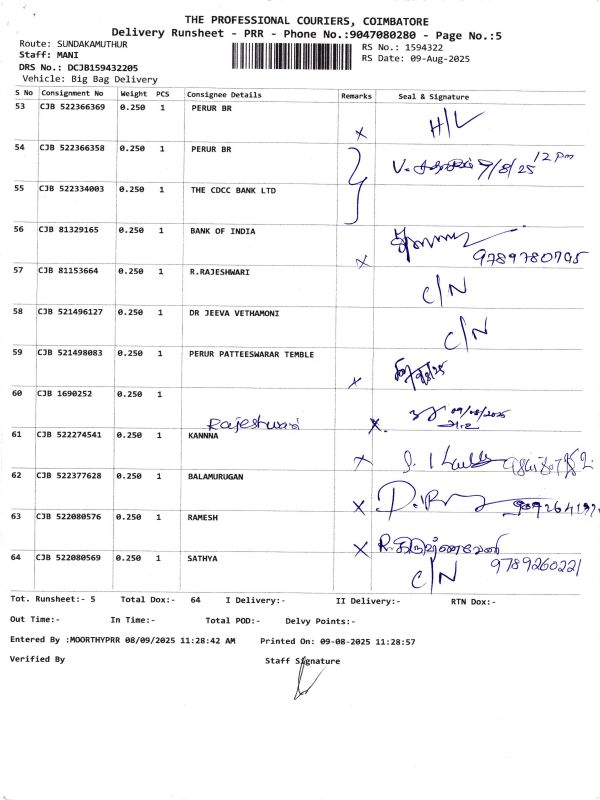 THE PROFESSIONAL COURIERS, COIMBATORE
Delivery Runsheet - PRR - Phone No.:9047080280 - Page No.:5
Route: SUNDAKAMUTHUR
RS No.: 1594322
Staff: MANI
RS Date: 09-Aug-2025
DRS No.: DCJB159432205
Vehicle: Big Bag Delivery
S No Consignment No Weight PCS Consignee Details Remarks Seal & Signature
53 CJB 522366369 0.250 1 PERUR BR x H/L
54 CJB 522366358 0.250 1 PERUR BR V. 9/8/25 12 pm
55 CJB 522334003 0.250 1 THE CDCC BANK LTD
56 CJB 81329165 0.250 1 BANK OF INDIA x 9789780795
57 CJB 81153664 0.250 1 R.RAJESHWARI C/N
58 CJB 521496127 0.250 1 DR JEEVA VETHAMONI C/N
59 CJB 521498083 0.250 1 PERUR PATTEESWARAR TEMBLE x 9/8/25
60 CJB 1690252 0.250 1 Rajeshwari x. 09/08/2025
61 CJB 522274541 0.250 1 KANNNA x
62 CJB 522377628 0.250 1 BALAMURUGAN x
63 CJB 522080576 0.250 1 RAMESH x 9789260221
64 CJB 522080569 0.250 1 SATHYA C/N
Tot. Runsheet:- 5 Total Dox:- 64 I Delivery:- II Delivery:- RTN Dox:-
Out Time:- In Time:- Total POD:- Delvy Points:-
Entered By :MOORTHYPRR 08/09/2025 11:28:42 AM Printed On: 09-08-2025 11:28:57
Verified By Staff Signature